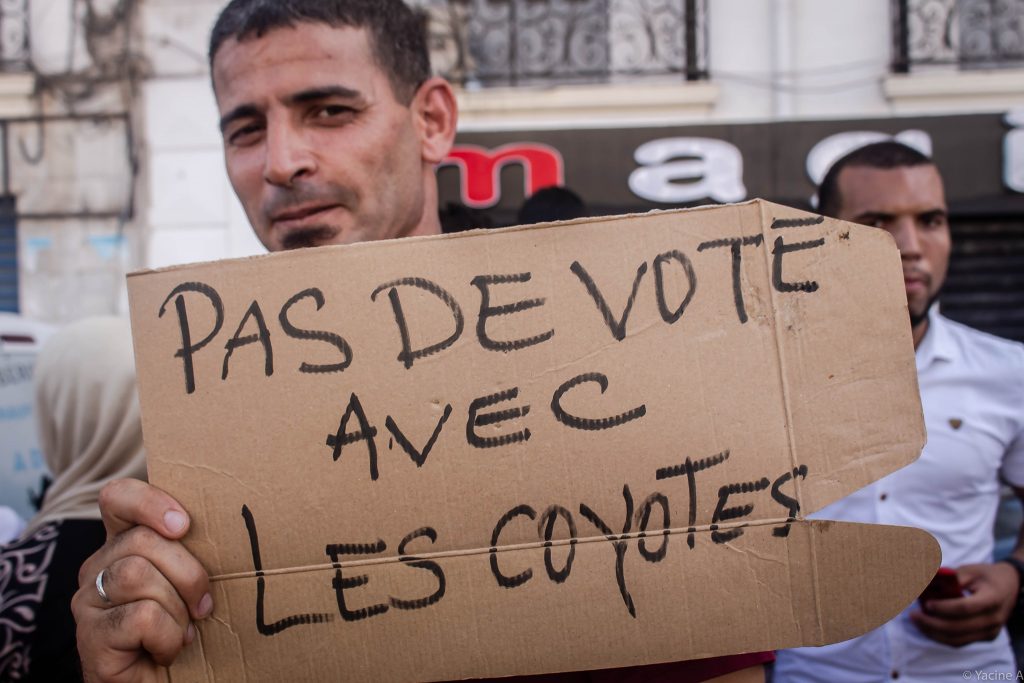 magi
PAS DE VOTE
AVEC
LES COYOTES
© Yacine A